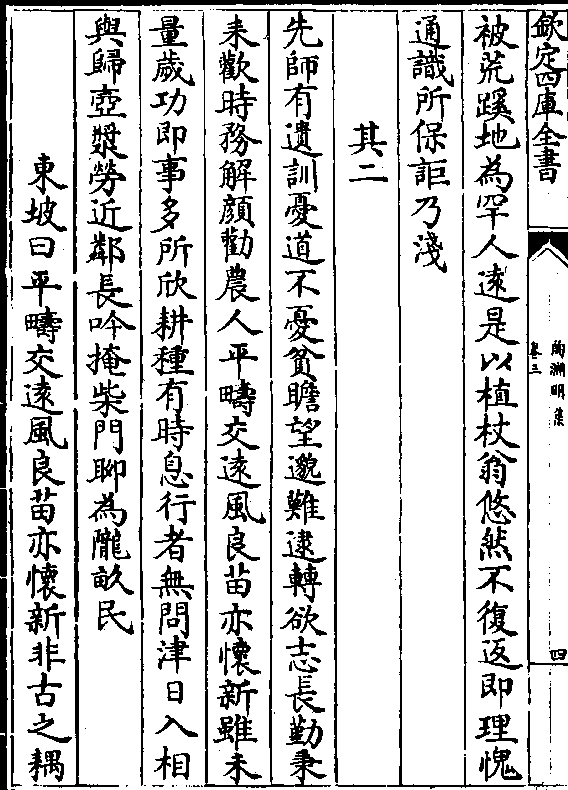 欽定四庫全書
陶淵明集
卷三
四
被荒蹊地為罕人逺是以植杖翁悠然不復返即理愧
通識所保詎乃淺
其二
先師有遺訓憂道不憂貧瞻望邈難逮轉欲志長勤秉
耒歡時務解顔勸農人平疇交逺風良苗亦懷新雖未
量歲功即事多所欣耕種有時息行者無問津日入相
與歸壺漿勞近鄰長吟掩柴門聊為隴畝民
東坡曰平疇交逺風良苗亦懷新非古之耦